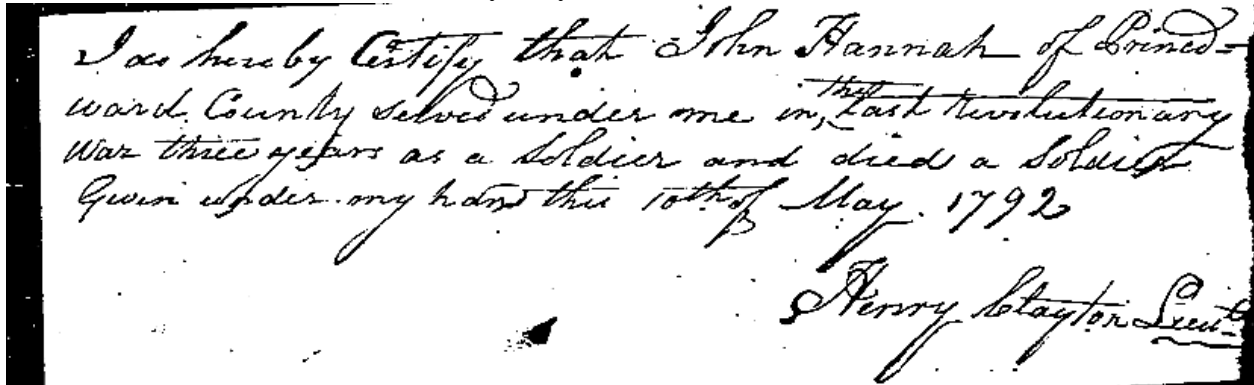 I do hereby Certify that John Hannah of Princed=
ward County served under me in, the Last revolutionary
War three years as a Soldier and died a Soldier
Given under my hand this 10th of May. 1792
Henry Clayton Lieut